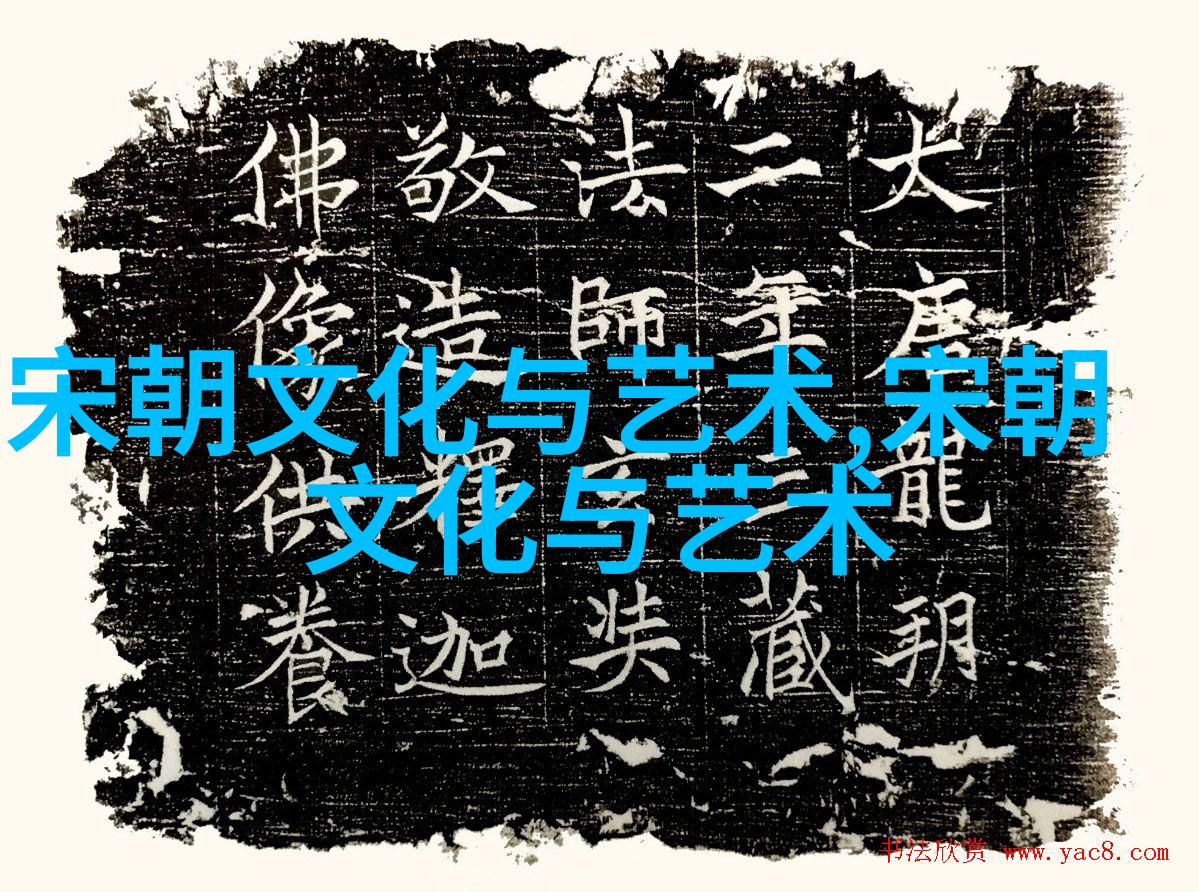 宋朝文化与艺术,宋朝
文化与艺术
大唐龍朔
二年三藏
法師玄奘
敬造釋迦
佛像供養
书法欣赏 www.yac8.com